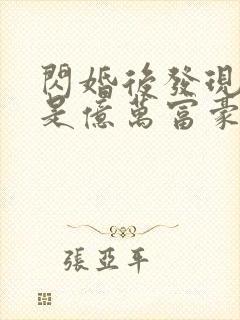 閃婚後發現
是億萬富豪
張亞平